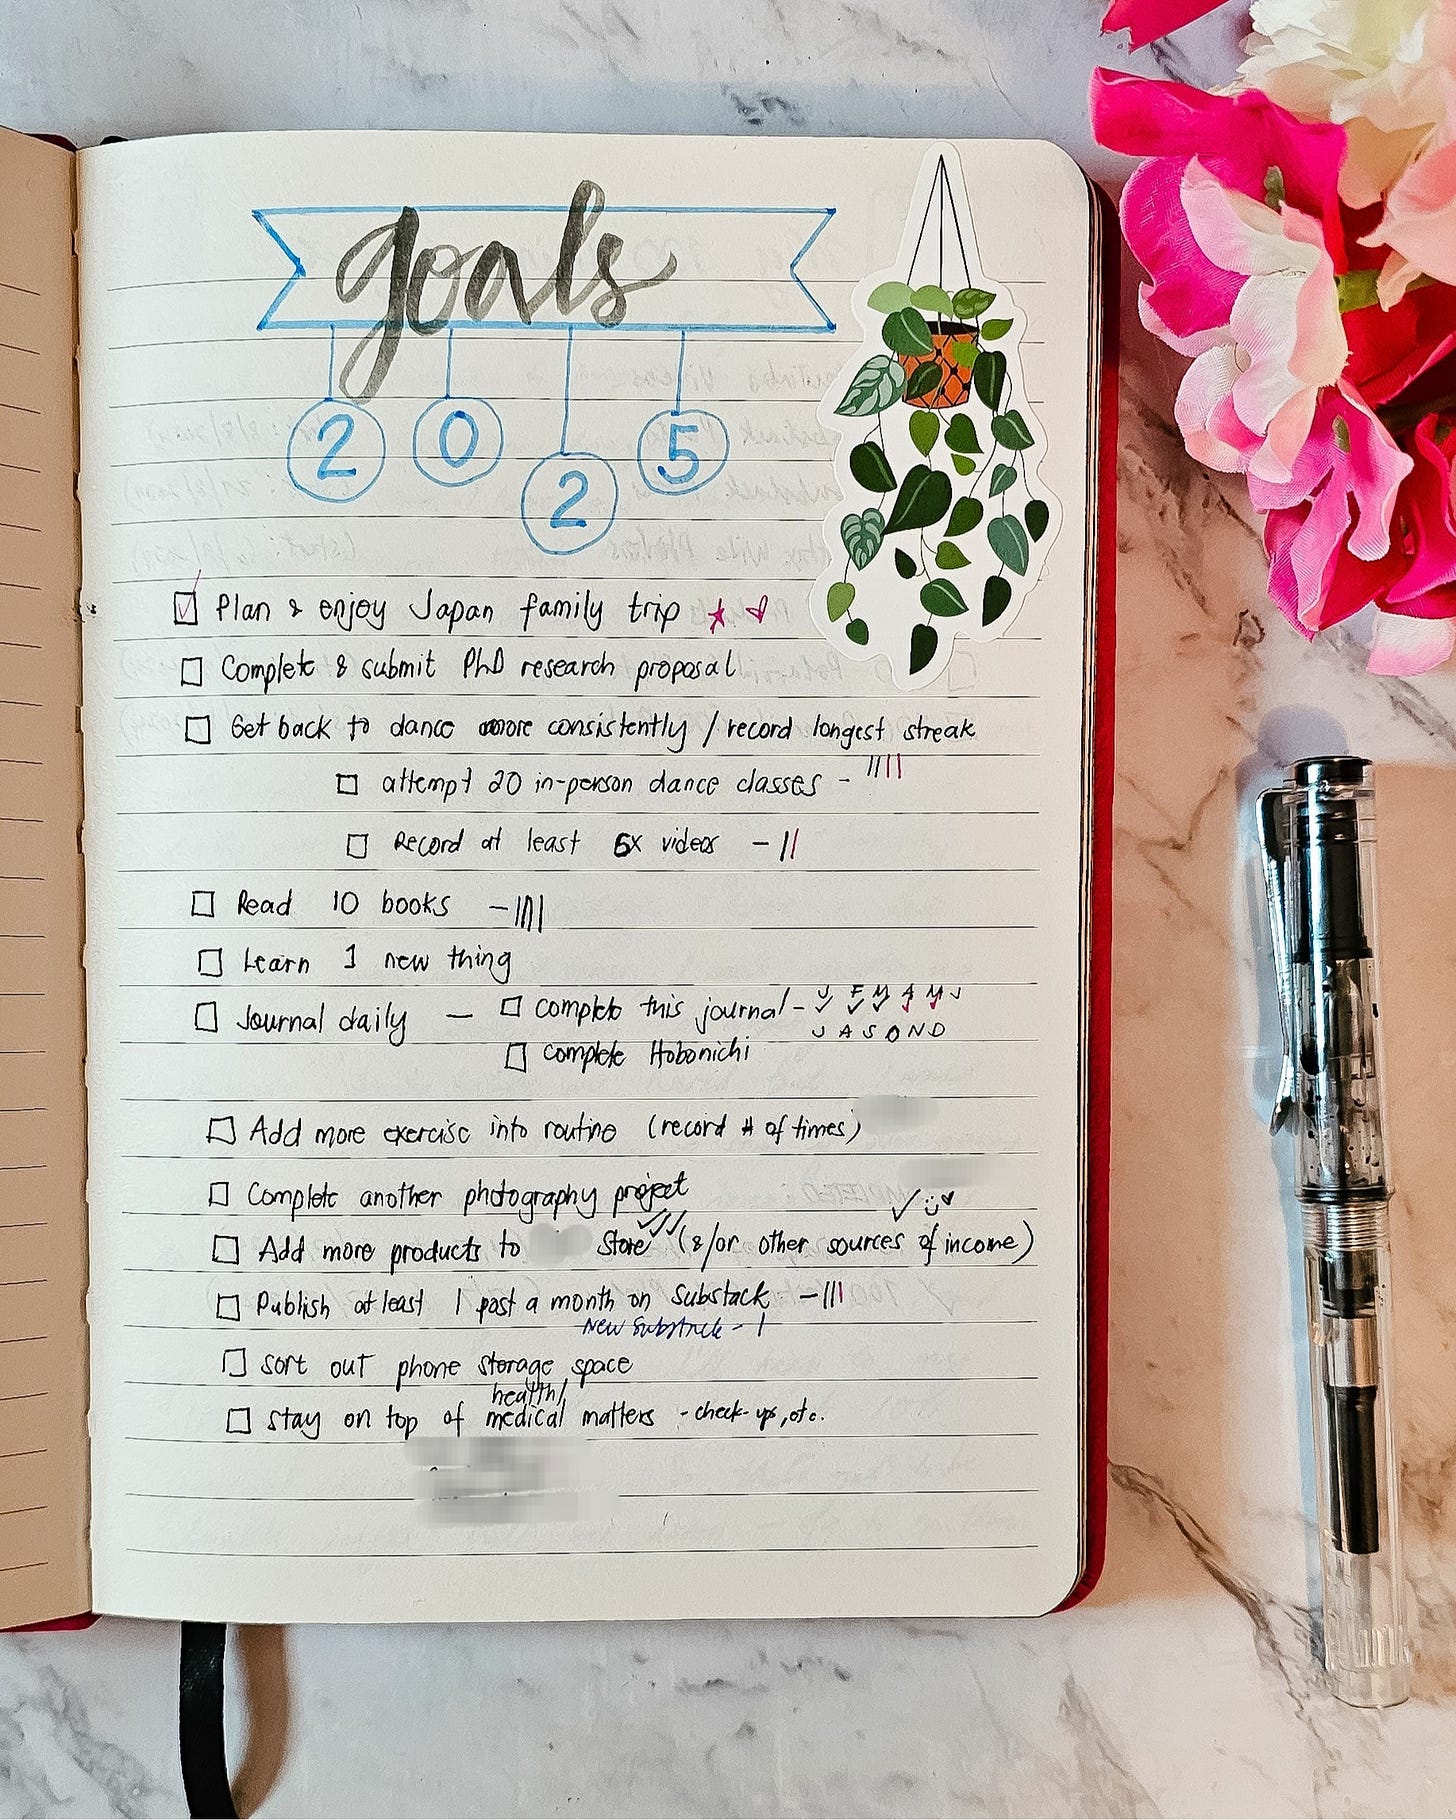 goals
2025
Plan & enjoy Japan family trip
Complete & submit PhD research proposal
Get back to dance more consistently / record longest streak
attempt 20 in-person dance classes -
Record at least 6x videos -
Read 10 books -
Learn 1 new thing
Journal daily — complete this journal - J F M A M J
J A S O N D
complete Hobonichi
Add more exercise into routine (record # of times)
Complete another photography project
Add more products to Store (&/or other sources of income)
Publish at least 1 post a month on Substack -
New Substack - 1
sort out phone storage space
health/
stay on top of medical matters - check-ups, etc.